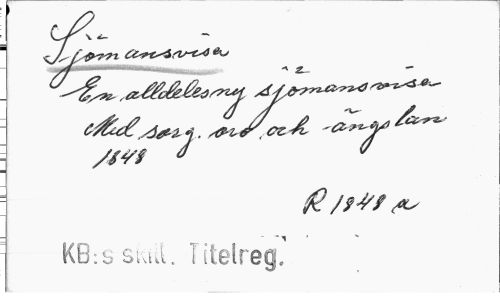 Sjömansvisa
En alldeles ny sjömansvisa
Med sorg. oro och ängslan
1848
R 1848 a
KB:s skill. Titelreg.